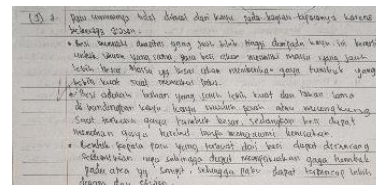 (1) 2. Palu umumnya tidak dibuat dari kayu pada bagian kepalanya karena
beberapa alasan.
• Besi memiliki densitas yang jauh lebih tinggi daripada kayu. Ini berarti
untuk ukuran yang sama, besi akan memiliki massa yang jauh
lebih besar. Massa yg besar akan memberikan gaya tumbuk yang
lebih kuat saat memukul paku.
• Besi adalah bahan yang jauh lebih kuat dan tahan lama
di bandingkan kayu. Kayu mudah pecah atau
saat terkena gaya tumbuk besar, sedangkan besi dapat
menahan gaya tersebut tanpa mengalami kerusakan.
• Bentuk kepala palu yang terbuat dari besi dapat dirancang
sedemikian rupa sehingga dapat memfokuskan gaya tumbuk
pada area yg sempit, sehingga paku dapat tertancap lebih
dalam dan efisien.